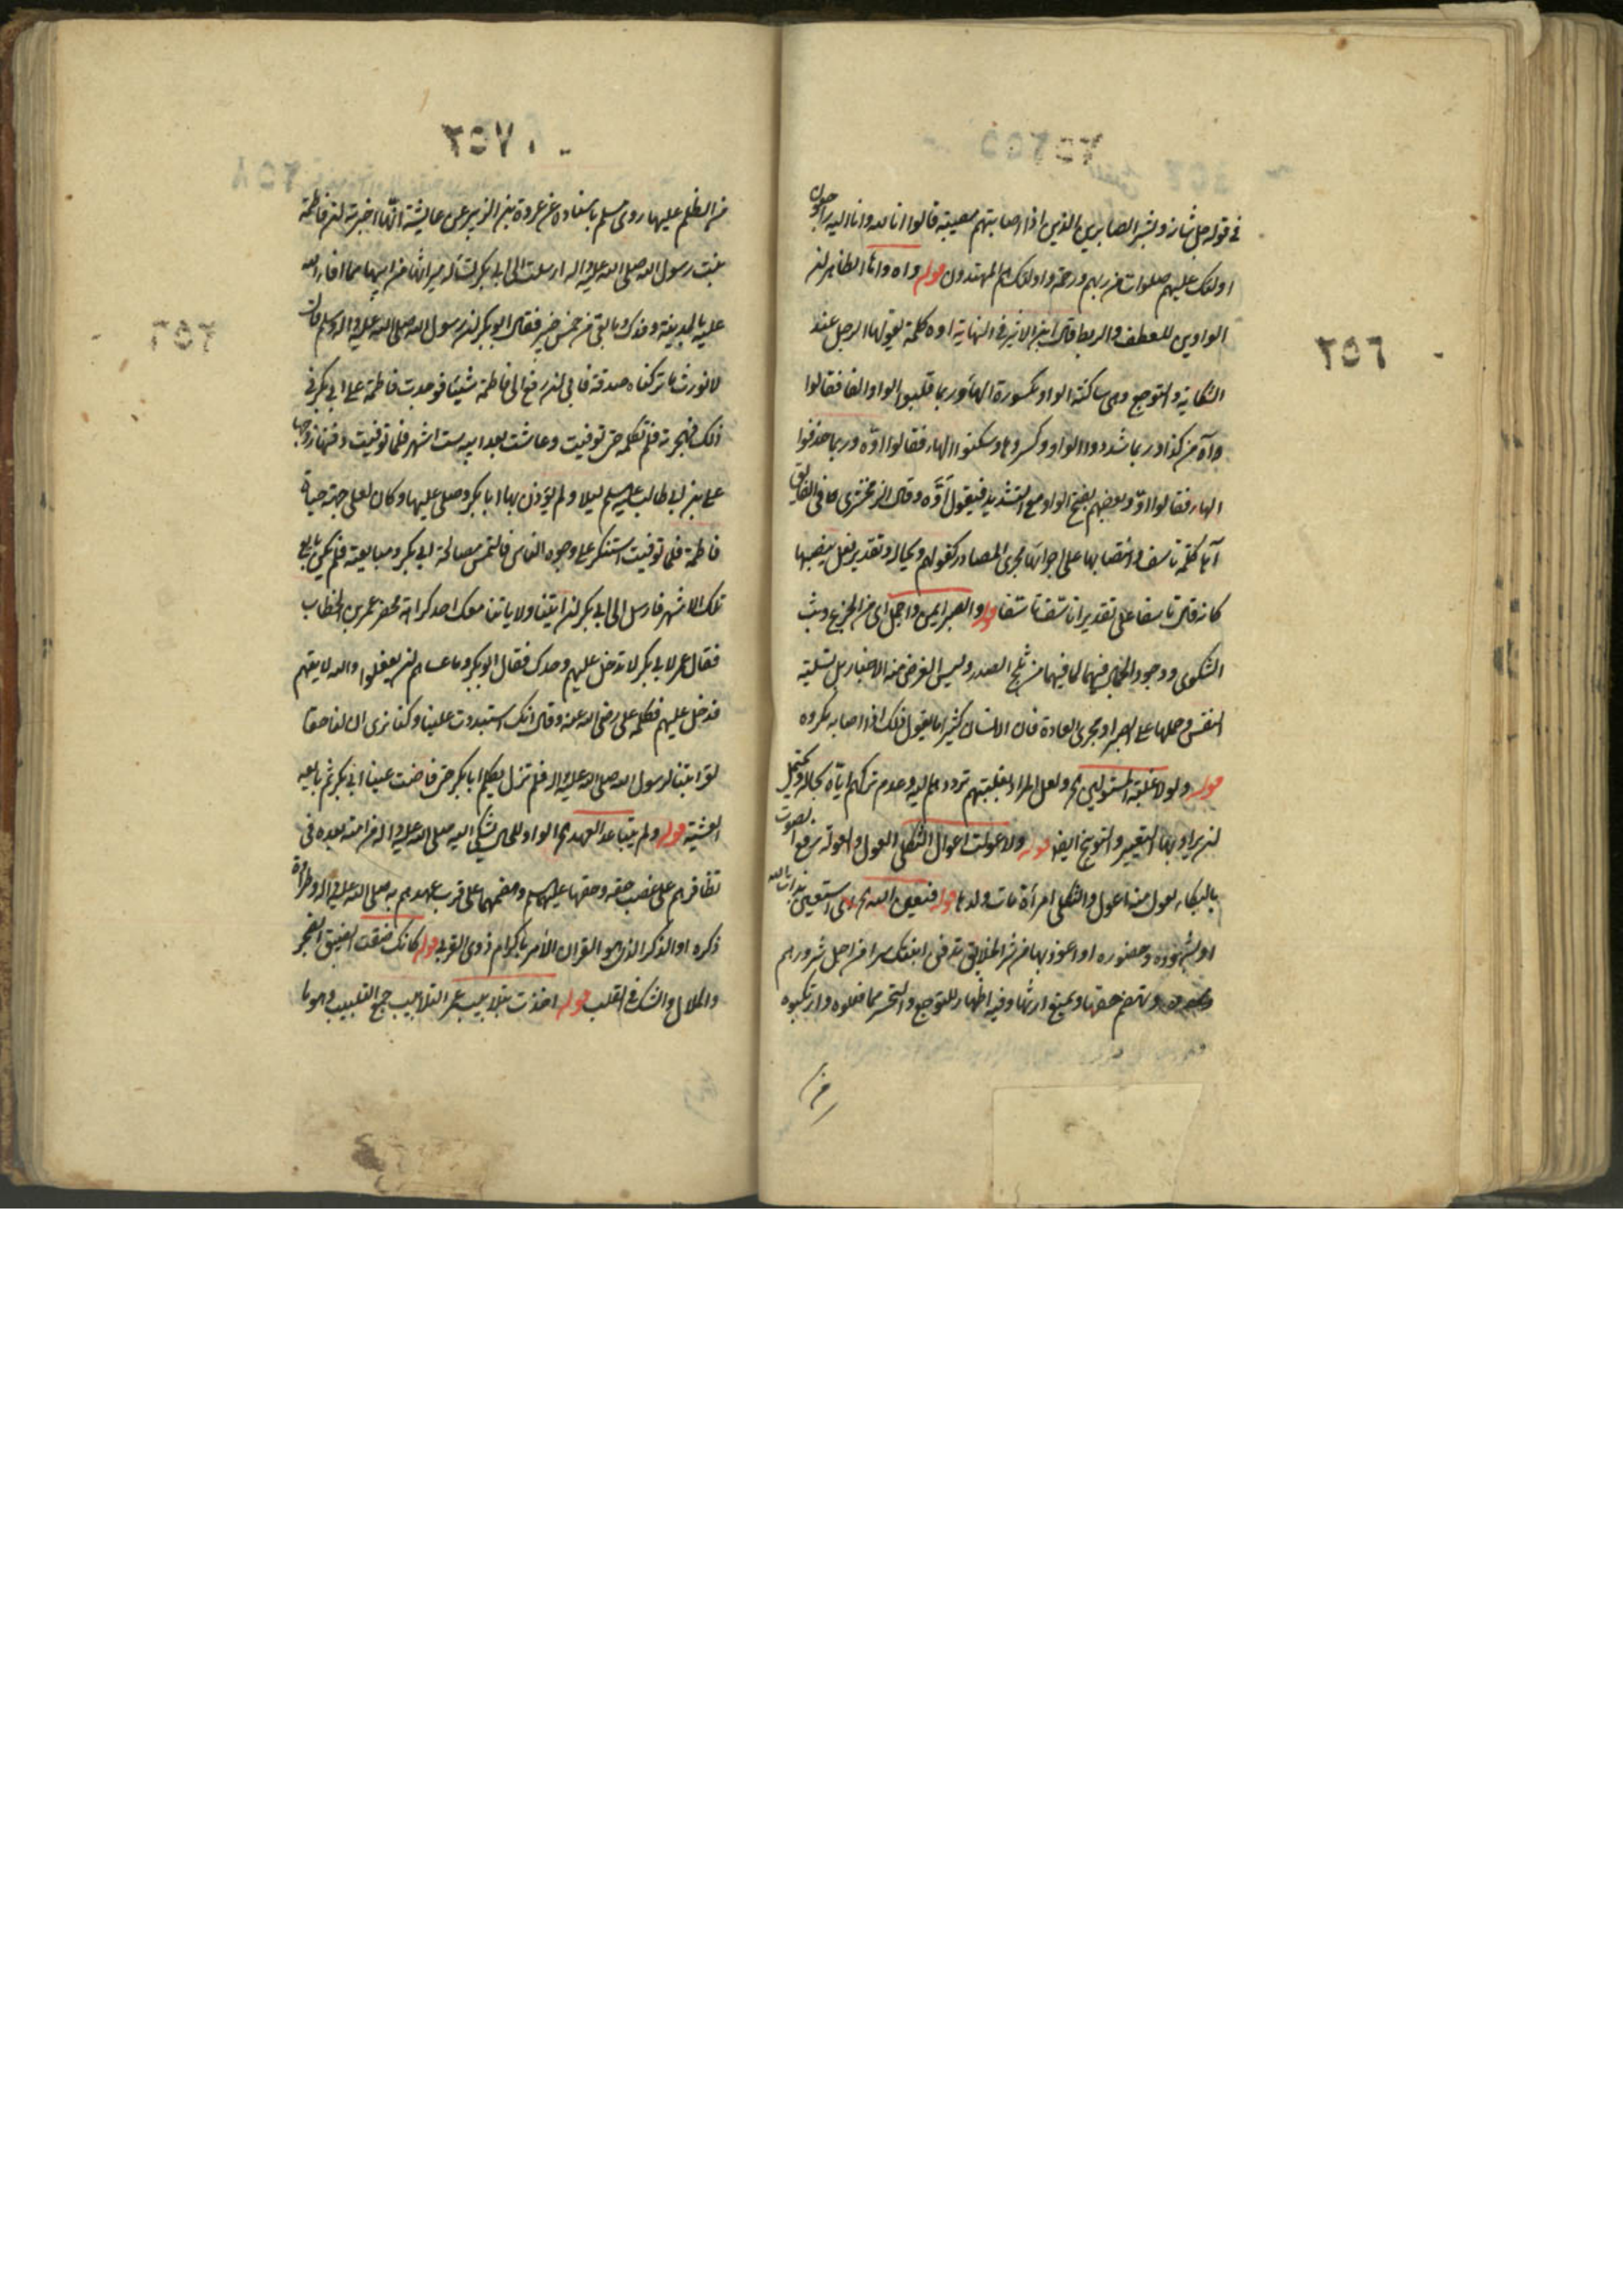 ٢٥٦
في قوله جل شانه وبشر الصابرين الذين اذا اصابتهم مصيبة قالوا انا لله وانا اليه راجعون
اولئك عليهم صلوات من ربهم ورحمة واولئك هم المهتدون قوله واه واها الظاهر ان
الواوين للعطف والربط قال ابن الاثير في النهاية اوه كلمة يقولها الرجل عند
الشكاية والتوجع وهي ساكنة الواو مكسورة الهاء وربما قلبوا الواو الفا فقالوا
واه من كذا وربما شددوا الواو وكسروها وسكنوا الهاء فقالوا اوّه وربما حذفوا
الهاء فقالوا اوّ وبعضهم يفتح الواو مع التشديد فيقول اَوَّه وقال الزمخشري في الفايق
آها كلمة تاسف وانتصابها على اجرائها مجرى المصادر كقولهم ويحا له وتقدير فعل ينصبها
كانه قال تاسفا على تقدير اتاسف تاسفا قوله والصبر ايمن واجمل اي من الجزع وبث
الشكوى ووجود فيهما لما فيهما من ثلج الصدر وليس الغرض منه الاخبار بل تسلية
النفس وحملها على الصبر او مجرى العادة فان الانسان كثيرا ما يقول ذلك اذا اصابه مكروه
قوله ولولا غلبة المستولين الخ ولعل المراد بغلبتهم ترددهم اليه وعدم تركهم اياه بحاله ويحتمل
ان يراد بها التعيير والتوبيخ ايضا قوله ولاعولت اعوال الثكلى العول والعولة رفع الصوت
بالبكاء يعول منه اعول والثكلى امراة مات ولدها قوله فبعين الله الخ اي استعين بذات الله
او بشهوده وحضوره او اعوذ بها من شر الخلائق تدفن ابنتك سرا من اجل شرورهم
وتهضم حقها ويمنع ارثها وفيه اظهار للتوجع والتحسر مما فعلوه وارتكبوه
من
٢٥٧
من الظلم عليها روى مسلم باسناده عن عروة بن الزبير عن عايشة انها اخبرته ان فاطمة
بنت رسول الله صلى الله عليه واله ارسلت الى ابي بكر تساله ميراثها من ابيها مما افاء الله
عليه بالمدينة وفدك وما بقي من خمس خيبر فقال ابو بكر ان رسول الله صلى الله عليه واله وسلم قال
لا نورث ما تركناه صدقة فابى ان يدفع الى فاطمة شيئا فوجدت فاطمة على ابي بكر في
ذلك فهجرته فلم تكلمه حتى توفيت وعاشت بعد ابيه ستة اشهر فلما توفيت دفنها زوجها
علي بن ابي طالب عليه السلم ليلا ولم يؤذن بها ابا بكر وصلى عليها وكان لعلي جهة حياة
فاطمة فلما توفيت استنكر علي وجوه الناس فالتمس مصالحة ابي بكر ومبايعته فلم يكن بايع
تلك الاشهر فارسل الى ابي بكر ان ائتنا ولا ياتنا معك احد كراهة محضر عمر بن الخطاب
فقال عمر لابي بكر لا تدخل عليهم وحدك فقال ابو بكر وما عساهم ان يفعلوا والله لاتيتهم
فدخل عليهم فكلمه علي رضي الله عنه وقال انك استبددت علينا وكنا نرى ان لنا حقا
لقرابتنا لرسول الله صلى الله عليه واله فلم تزل يكلم ابا بكر حتى فاضت عينا ابي بكر ثم بايعه
العشية قوله ولم يتباعد العهد الخ الواو للحال يشكي اليه صلى الله عليه واله من امته بعده في
تظافرهم على غصب حقه وحقها عليهما السلم وهضمهما على قرب عهدهم به صلى الله عليه واله وطراوة
ذكره او الذكر الذي هو القران الآمر باكرام ذوي القربى قوله كانك ضقت الضيق الضجر
والملال والشك في القلب قوله اخذت بتلابيب عمر التلابيب جمع التلبيب وهو ما